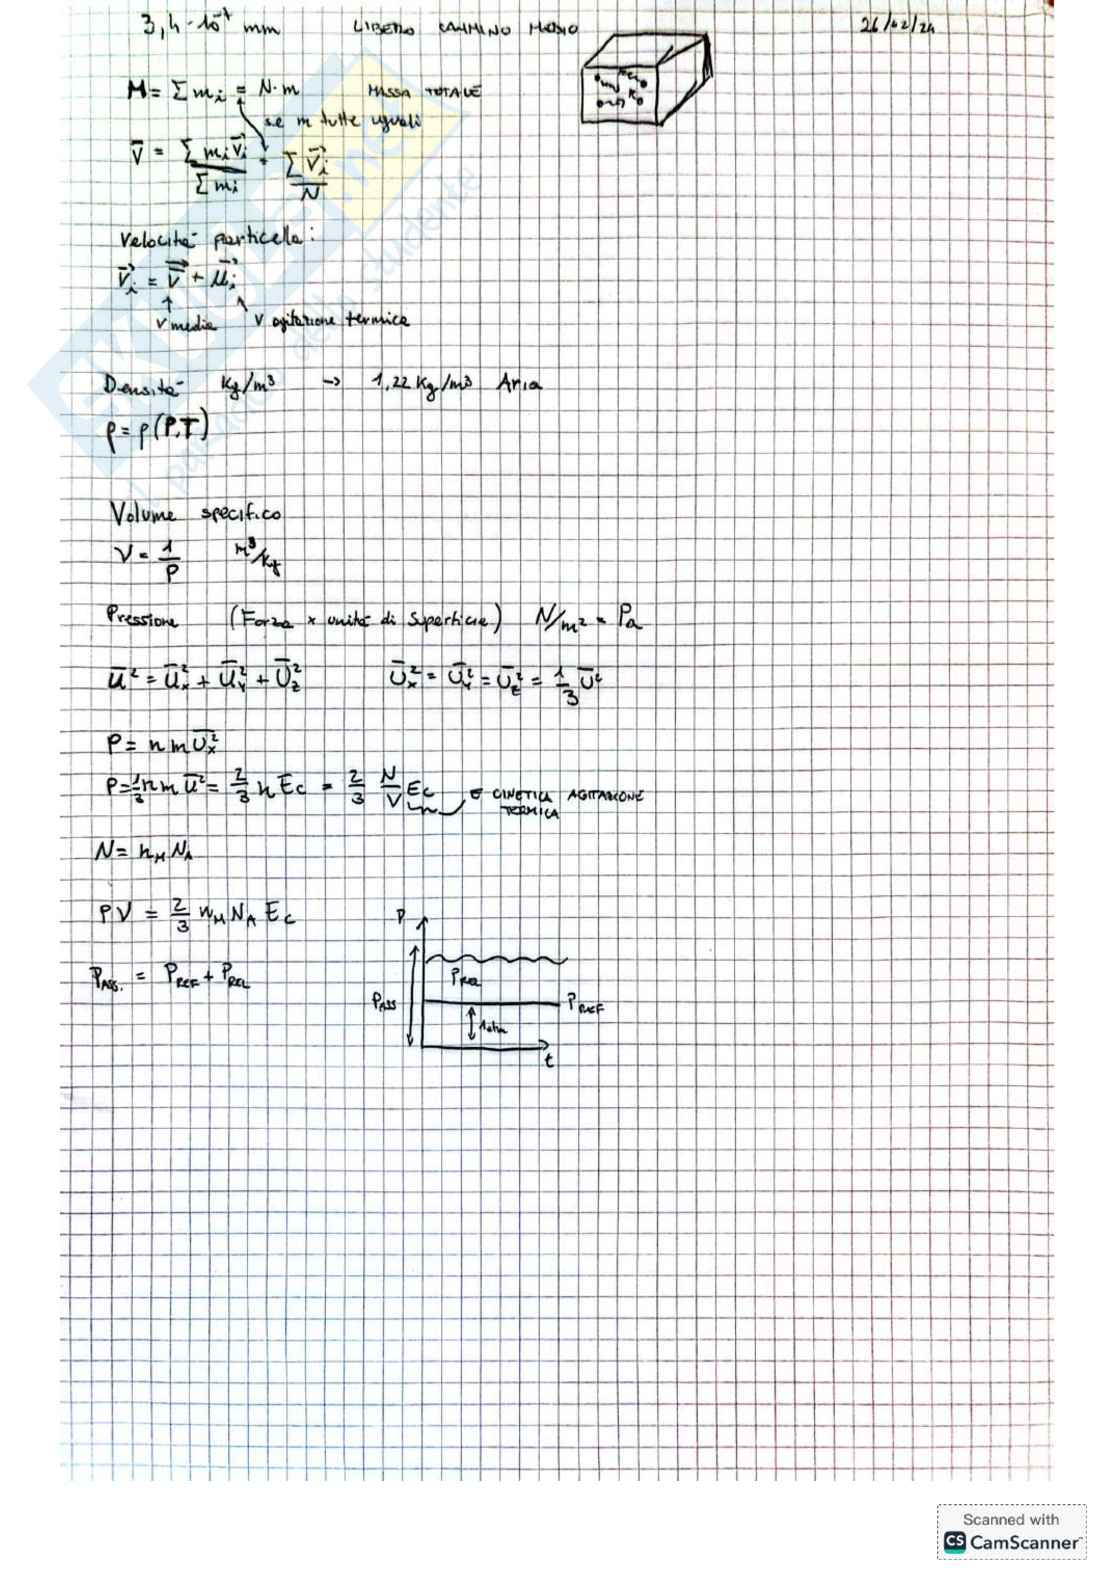 3,4·10⁻⁴ mm LIBERO CAMMINO MEDIO 26/02/24
M = Σ mᵢ = N·m MASSA TOTALE
se m tutte uguali
V̄ = Σ mᵢ v⃗ᵢ / Σ mᵢ = Σ v⃗ᵢ / N
Velocità particella:
v⃗ᵢ = v̄⃗ + u⃗ᵢ
v media v agitazione termica
Densità Kg/m³ → 1,22 Kg/m³ Aria
ρ = ρ(P,T)
Volume specifico
V = 1/ρ m³/kg
Pressione (Forza x unità di Superficie) N/m² = Pa
ū² = ūₓ² + ū_y² + ū_z² ūₓ² = ū_y² = ū_z² = 1/3 ū²
P = n m ūₓ²
P = 1/3 n m ū² = 2/3 n Ec = 2/3 N/V Ec E CINETICA AGITAZIONE
TERMICA
N = n_M N_A
PV = 2/3 n_M N_A E_C
P_ASS. = P_REF + P_REL
P
P_REL
P_ASS
P_REF
1 atm
t
Scanned with
CS CamScanner